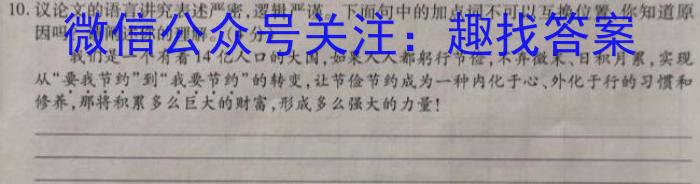 10. 议论文的语言讲究表述严密,逻辑严谨。下面句中的加点词不可以互换位置,你知道原
因吗
微信公众号关注：趣找答案
我们是一个有着14亿人口的大国,如果人人都躬行节俭,不弃微末、日积月累,实现
从“要我节约”到“我要节约”的转变,让节俭节约成为一种内化于心、外化于行的习惯和
修养,那将积累多么巨大的财富,形成多么强大的力量!